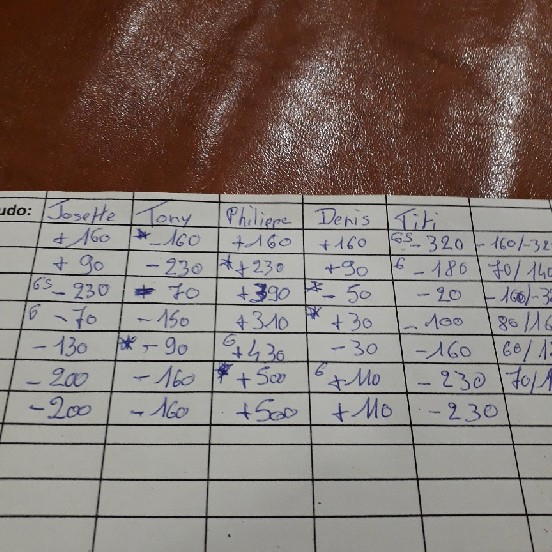 udo: Josette Tony Philippe Denis Titi
+160 * -160 +160 +160 GS -320 -160/-32
+90 -230 * +230 +90 G -180 70/140
GS -230 - 70 +390 * -50 -20 -160/-3
G -70 -150 +310 * +30 -100 80/16
-130 * -90 G +430 -30 -160 60/1
-200 -160 * +500 G +110 -230 70/1
-200 -160 +500 +110 -230